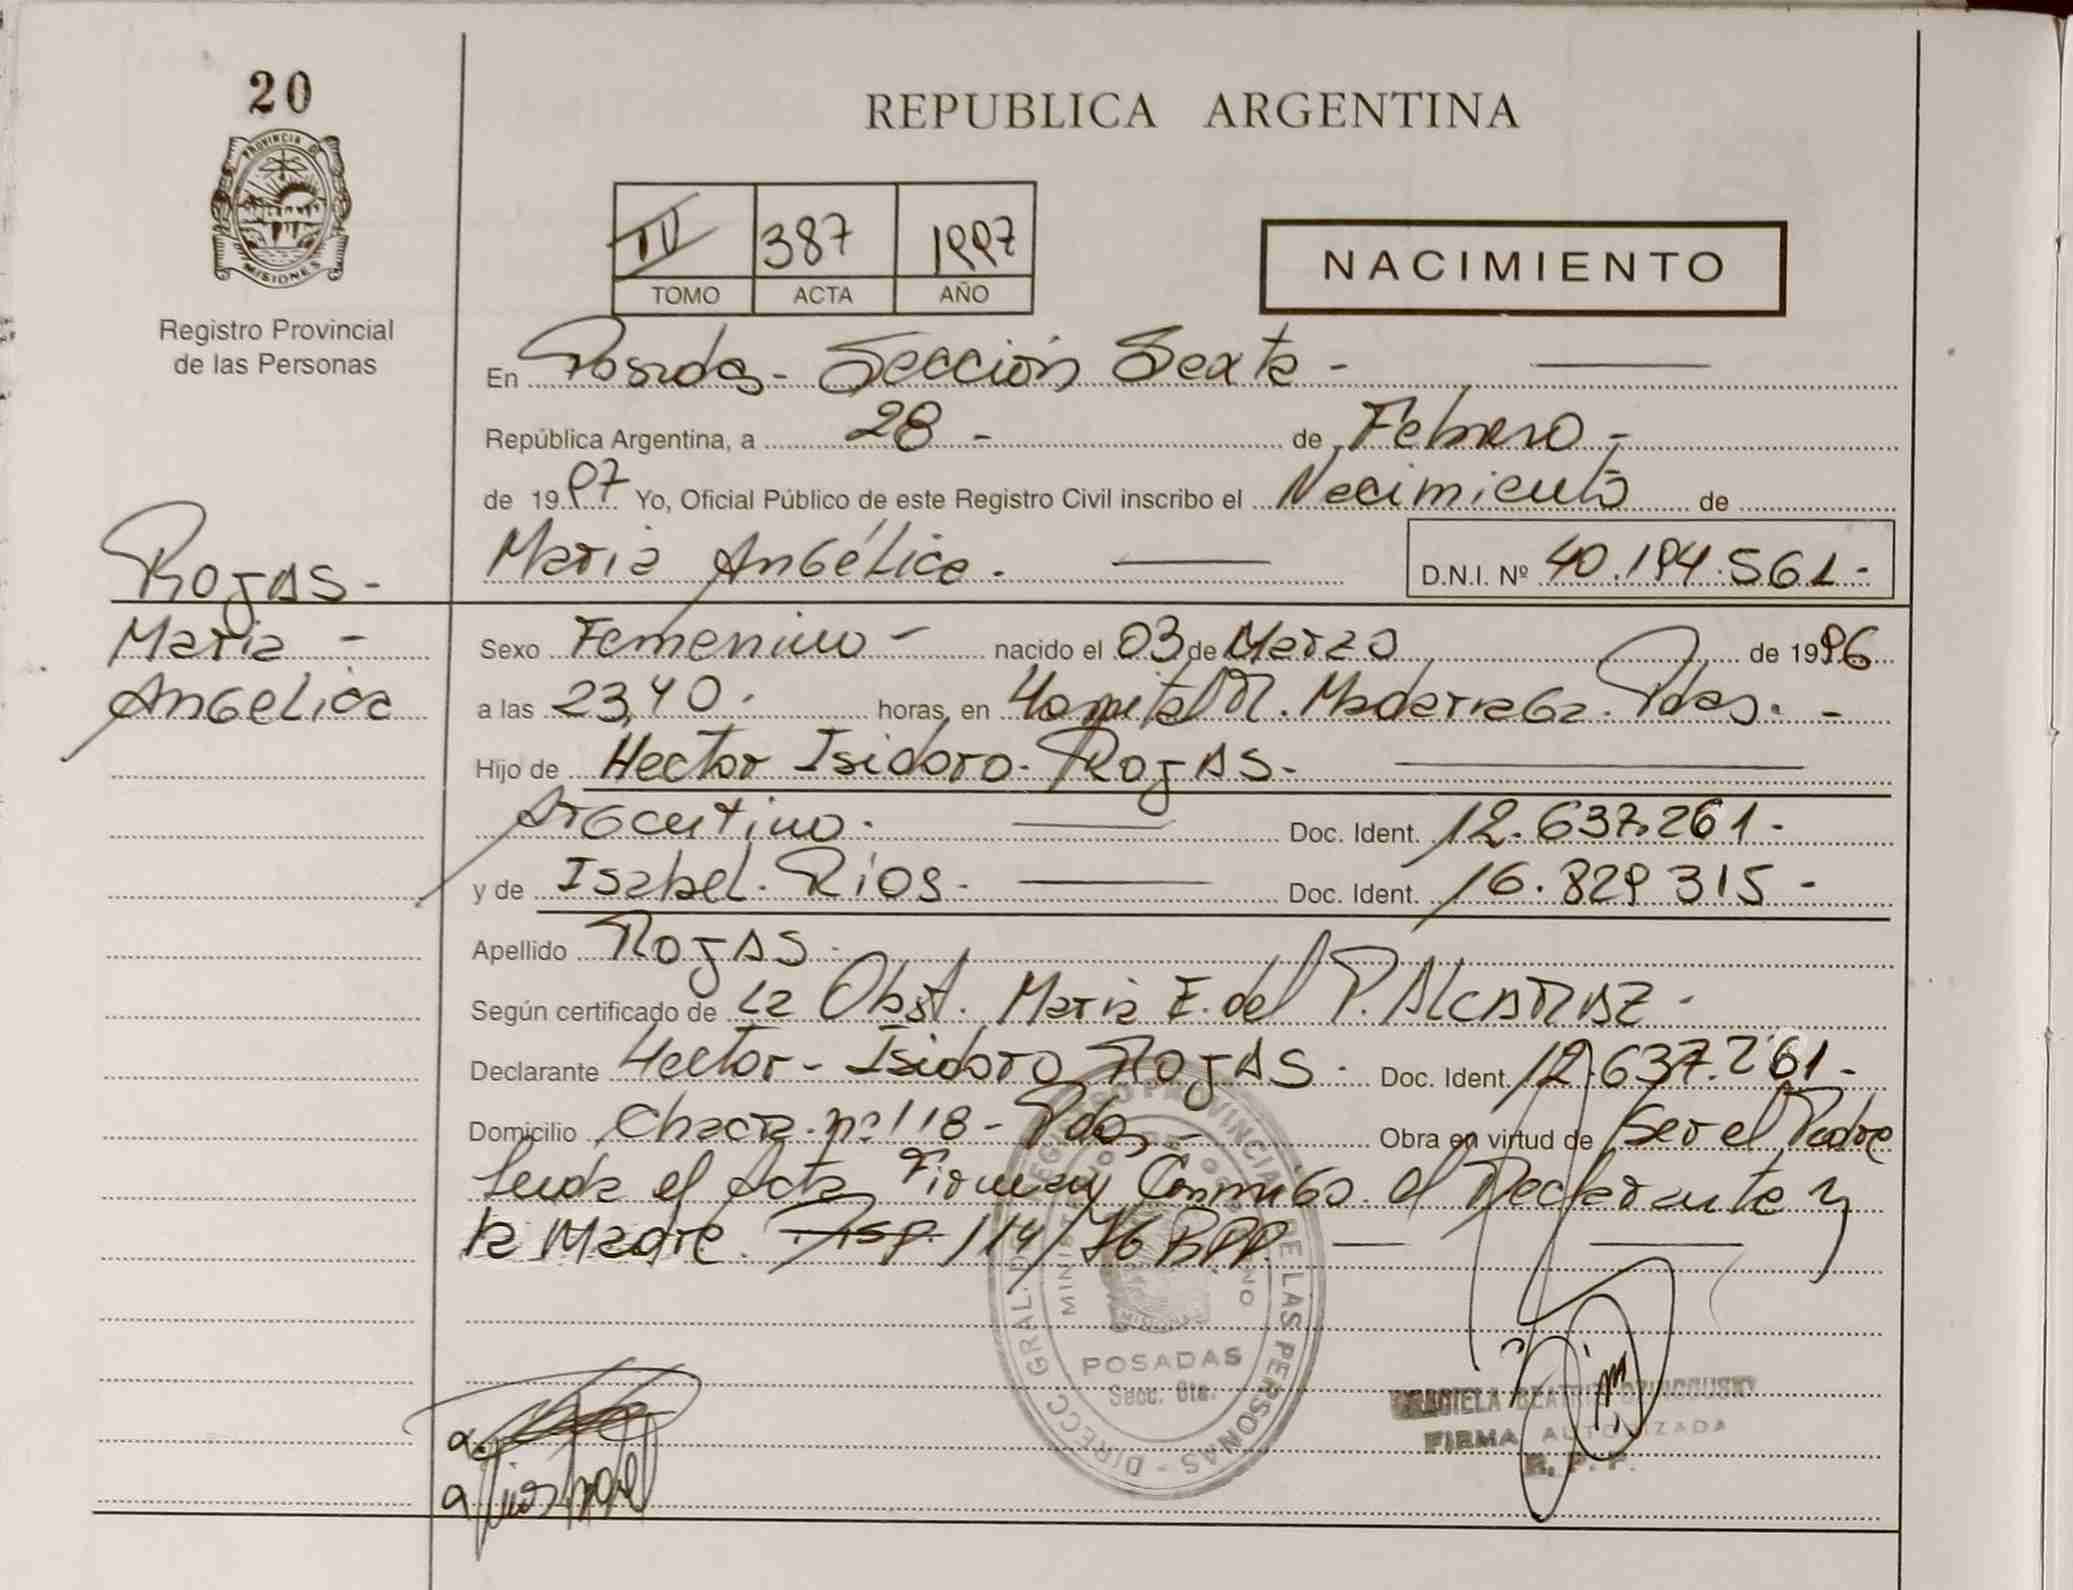 20
PROVINCIA DE
MISIONES
Registro Provincial
de las Personas
REPUBLICA ARGENTINA
IV 387 1997
TOMO ACTA AÑO
NACIMIENTO
En Posadas - Sección Sexta -
República Argentina, a 28 - de Febrero -
de 1997 Yo, Oficial Público de este Registro Civil inscribo el Nacimiento de
Maria Angélica. D.N.I. Nº 40.194.561.-
Rojas -
Maria -
Angelica
Sexo Femenino - nacido el 03 de Marzo de 1996
a las 23,40. horas, en Hospital R. Madariaga. Pdas. -
Hijo de Hector Isidoro. Rojas. -
Argentino. Doc. Ident. 12.637.261 -
y de Isabel. Rios - Doc. Ident. 16.829 315 -
Apellido Rojas.
Según certificado de La Obst. Maria E. del P. Alcaraz -
Declarante Hector - Isidoro Rojas - Doc. Ident. 12.637.261 -
Domicilio Chacra nº 118 - Pdas - Obra en virtud de Ser el Padre
Leida el Acta Firman Conmigo el Declarante y
la Madre. Disp. 114/76 RPP.
DIRECC GRAL. DE REGISTRO PROVINCIAL DE LAS PERSONAS
MINISTERIO DE GOBIERNO
POSADAS
Secc. 6ta.
GRACIELA BEATRIZ
FIRMA AUTORIZADA
R. P. P.